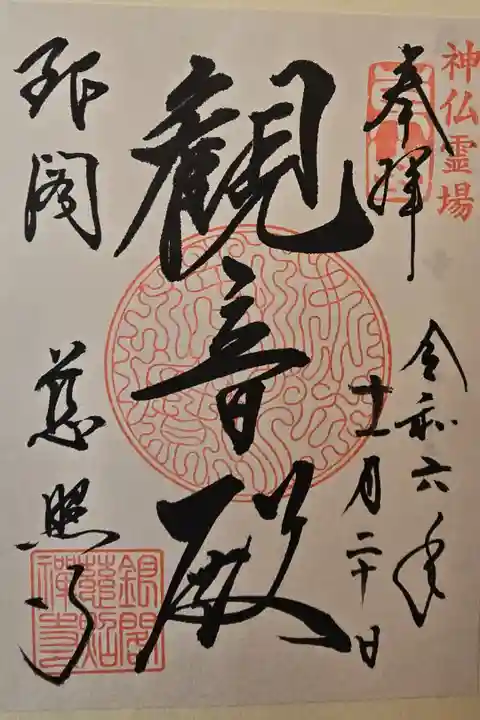 神仏霊場
奉拝
令和六年
十一月二十日
観音殿
銀閣 慈照寺
銀閣
慈照
禅寺